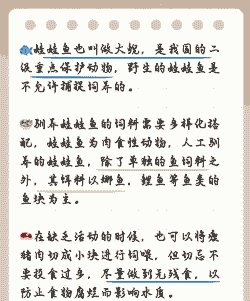 娃娃鱼也叫做大鲵，是我国的二
级重点保护动物，野生的娃娃鱼是
不允许捕捉饲养的。
驯养娃娃鱼的饲料需要多样化搭
配，娃娃鱼为肉食性动物，人工驯
养的娃娃鱼，除了单独的鱼饲料之
外，其饵料以鲫鱼，鲤鱼等鱼类的
鱼块为主。
在缺乏活动的时候，也可以将瘦
猪肉切成小块进行饲喂，但切忌不
要投食过多，尽量做到无残食，以
防止食物腐烂而影响水质。